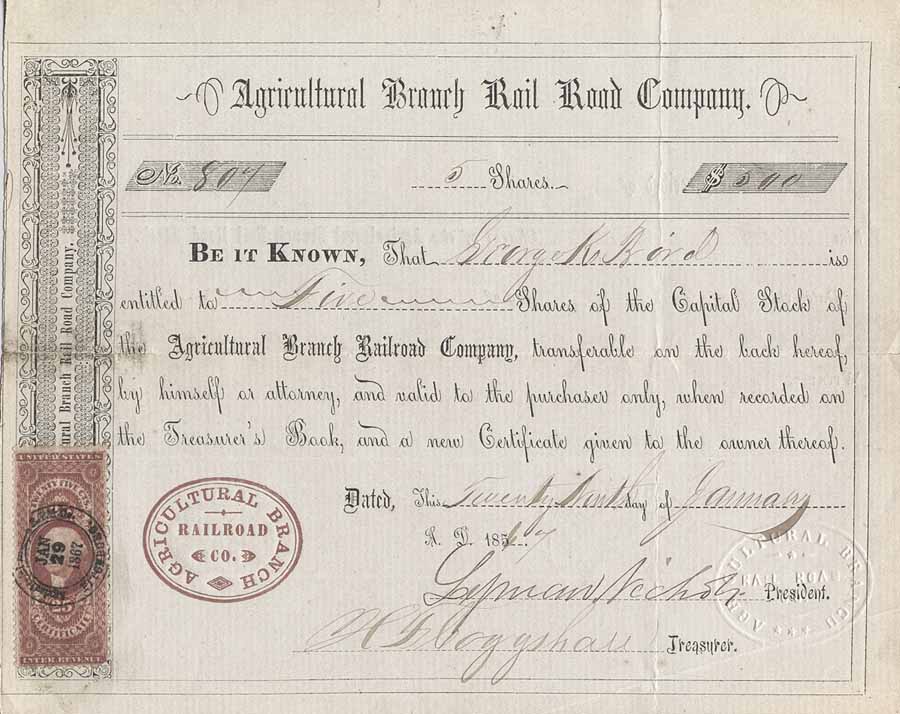 Agricultural Branch Rail Road Company.
No. 807 5 Shares. $ 500
BE IT KNOWN, That George K. Bird is
entitled to Five Shares of the Capital Stock of
the Agricultural Branch Railroad Company, transferable on the back hereof,
by himself or attorney, and valid to the purchaser only, when recorded on
the Treasurer's Book, and a new Certificate given to the owner thereof.
Dated, This Twenty Ninth day of January
A. D. 1867
Lyman Nichols President.
Treasurer.
AGRICULTURAL BRANCH
RAILROAD
CO.
AGRICULTURAL BRANCH
RAIL ROAD
ural Branch Rail Road Company.
UNITED STATES
TWENTY FIVE CTS.
JAN
29
1867
25
CERTIFICATE
INTER REVENUE